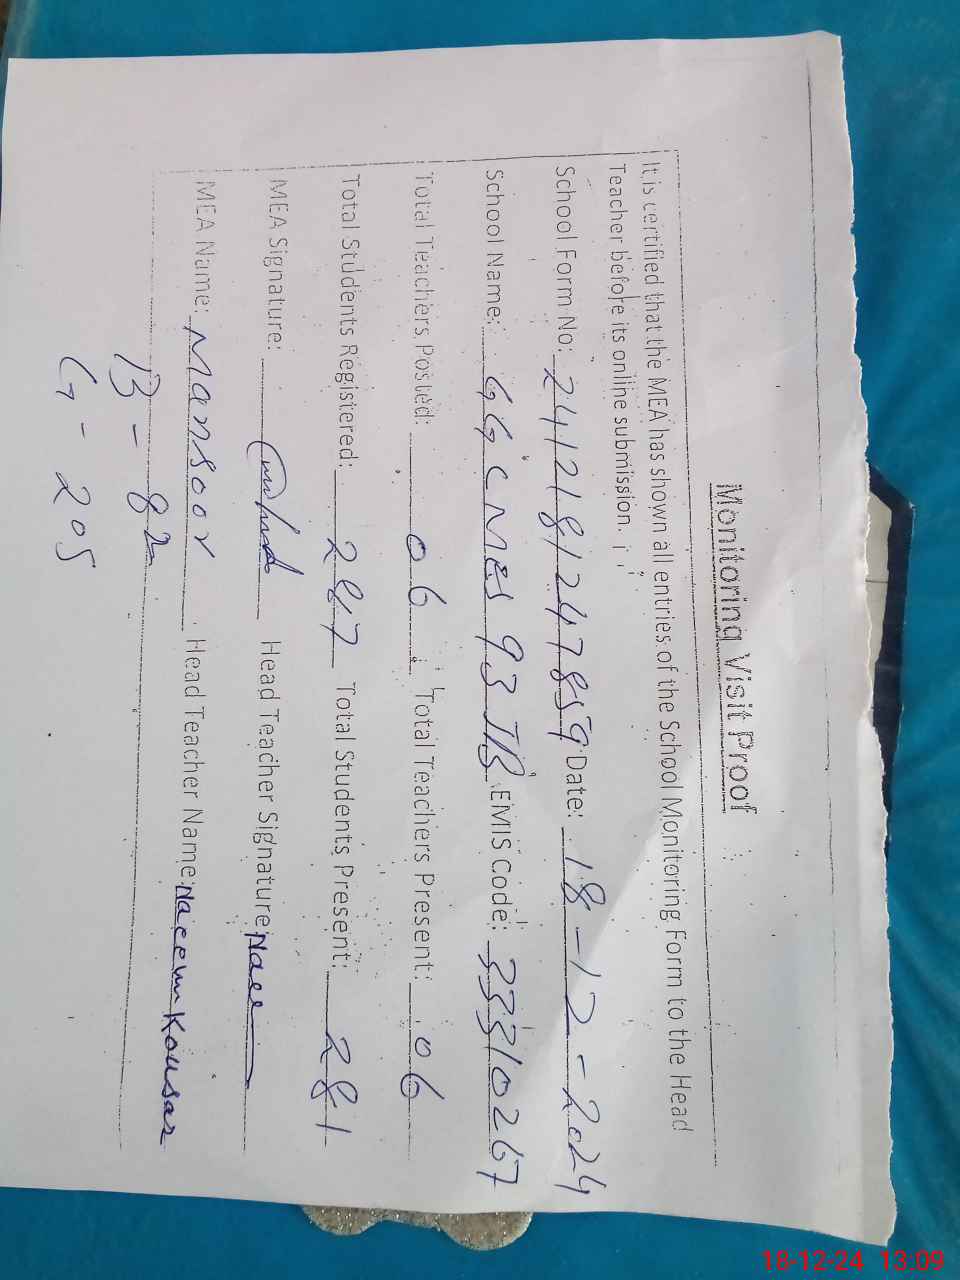 Monitoring Visit Proof
It is certified that the MEA has shown all entries of the School Monitoring Form to the Head
Teacher before its online submission.
School Form No: 2412181247859 Date: 18-12-2024
School Name: GGCMES 93 JB EMIS Code: 33310267
Total Teachers Posted: 06 Total Teachers Present: 06
Total Students Registered: 287 Total Students Present: 281
MEA Signature: Head Teacher Signature: Naee
MEA Name: Mansoor Head Teacher Name: Naeem Kousar
B - 82
G - 205
18-12-24 13:09